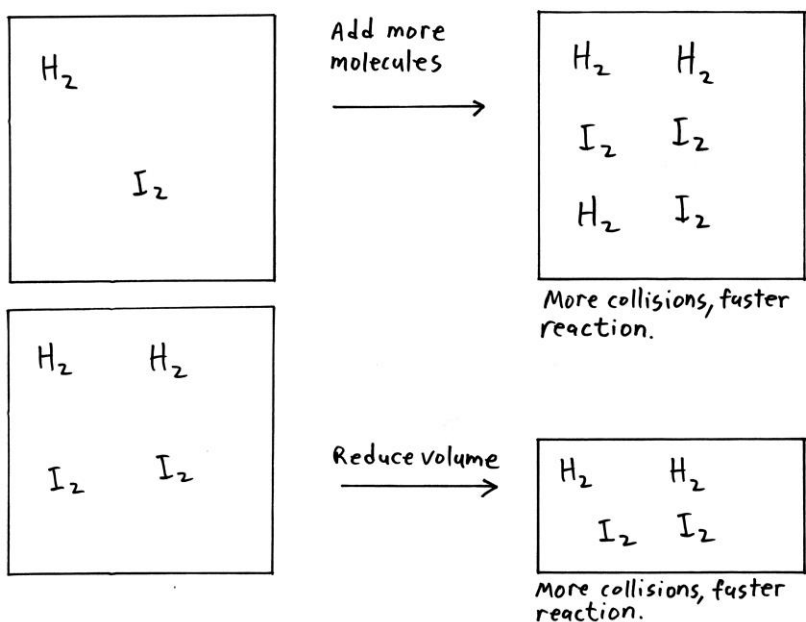 H₂
I₂
Add more
molecules
H₂ H₂
I₂ I₂
H₂ I₂
More collisions, faster
reaction.
H₂ H₂
I₂ I₂
Reduce volume
H₂ H₂
I₂ I₂
More collisions, faster
reaction.